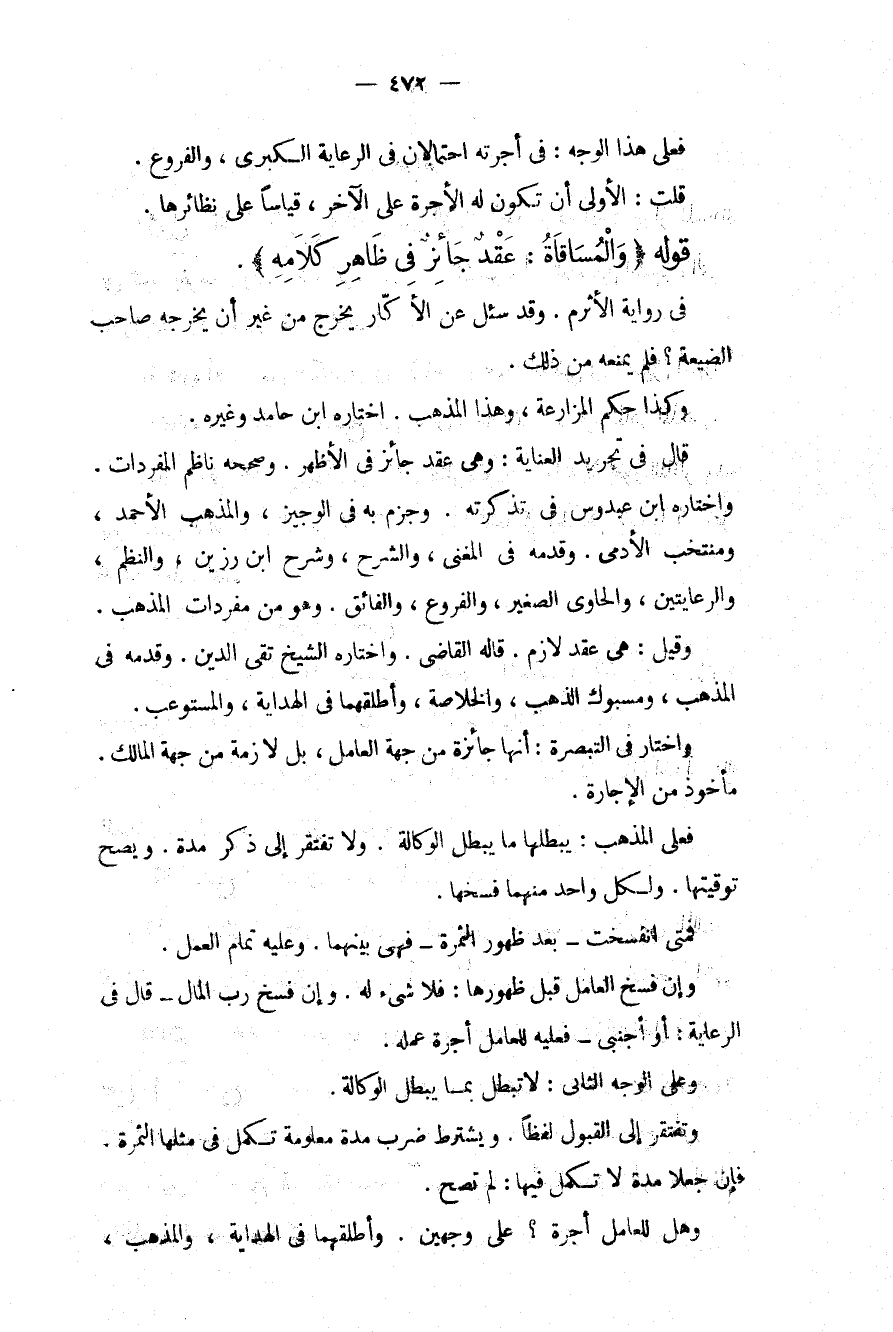 — ٤٧٢ —
فعلى هذا الوجه : فى أجرته احتمالان فى الرعاية الكبرى ، والفروع .
قلت : الأولى أن تكون له الأجرة على الآخر ، قياساً على نظائرها .
قوله ﴿ وَالْمُسَاقَاةُ : عَقْدٌ جَائِزٌ فِى ظَاهِرِ كَلَامِهِ ﴾ .
فى رواية الأثرم . وقد سئل عن الأكّار يخرج من غير أن يخرجه صاحب
الضيعة ؟ فلم يمنعه من ذلك .
وكذا حكم المزارعة ، وهذا المذهب . اختاره ابن حامد وغيره .
قال فى تجريد العناية : وهى عقد جائز فى الأظهر . وصححه ناظم المفردات .
واختاره ابن عبدوس فى تذكرته . وجزم به فى الوجيز ، والمذهب الأحمد ،
ومنتخب الأدمى . وقدمه فى المغنى ، والشرح ، وشرح ابن رزين ، والنظم ،
والرعايتين ، والحاوى الصغير ، والفروع ، والفائق . وهو من مفردات المذهب .
وقيل : هى عقد لازم . قاله القاضى . واختاره الشيخ تقى الدين . وقدمه فى
المذهب ، ومسبوك الذهب ، والخلاصة ، وأطلقهما فى الهداية ، والمستوعب .
واختار فى التبصرة : أنها جائزة من جهة العامل ، بل لازمة من جهة المالك .
مأخوذ من الإجارة .
فعلى المذهب : يبطلها ما يبطل الوكالة . ولا تفتقر إلى ذكر مدة . ويصح
توقيتها . ولكل واحد منهما فسخها .
فمتى انفسخت ــ بعد ظهور الثمرة ــ فهى بينهما . وعليه تمام العمل .
وإن فسخ العامل قبل ظهورها : فلا شىء له . وإن فسخ رب المال ــ قال فى
الرعاية : أو أجنبى ــ فعليه للعامل أجرة عمله .
وعلى الوجه الثانى : لا تبطل بما يبطل الوكالة .
وتفتقر إلى القبول لفظاً . ويشترط ضرب مدة معلومة تكمل فى مثلها الثمرة .
فإن جعلا مدة لا تكمل فيها : لم تصح .
وهل للعامل أجرة ؟ على وجهين . وأطلقهما فى الهداية ، والمذهب ،